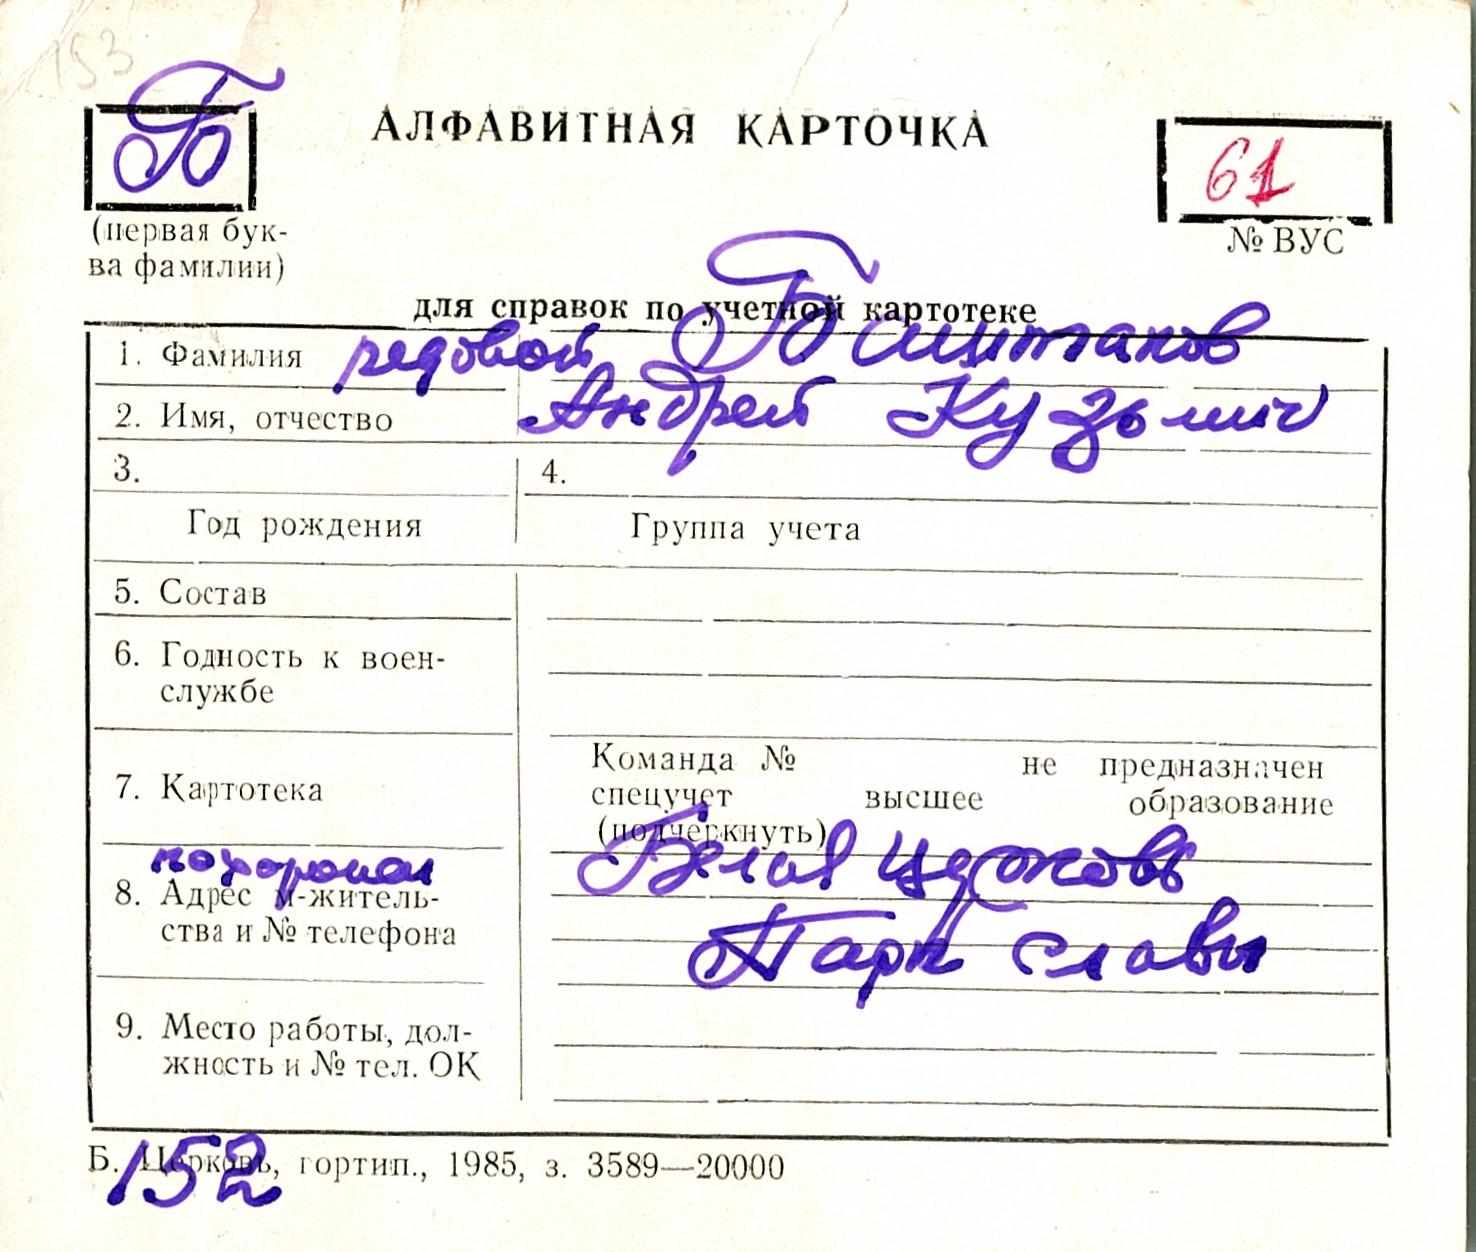 153
Б
АЛФАВИТНАЯ КАРТОЧКА
61
(первая бук-
ва фамилии)
№ ВУС
для справок по учетной картотеке
1. Фамилия рядовой
2. Имя, отчество Андрей Кузьмич
3. 4.
Год рождения Группа учета
5. Состав
6. Годность к воен-
службе
Команда № не предназначен
7. Картотека спецучет высшее образование
(подчеркнуть)
похоронен Белая Церковь
8. Адрес м-житель-
ства и № телефона Парк Славы
9. Место работы, дол-
жность и № тел. ОК
Б. Церковь, гортип., 1985, з. 3589—20000
152